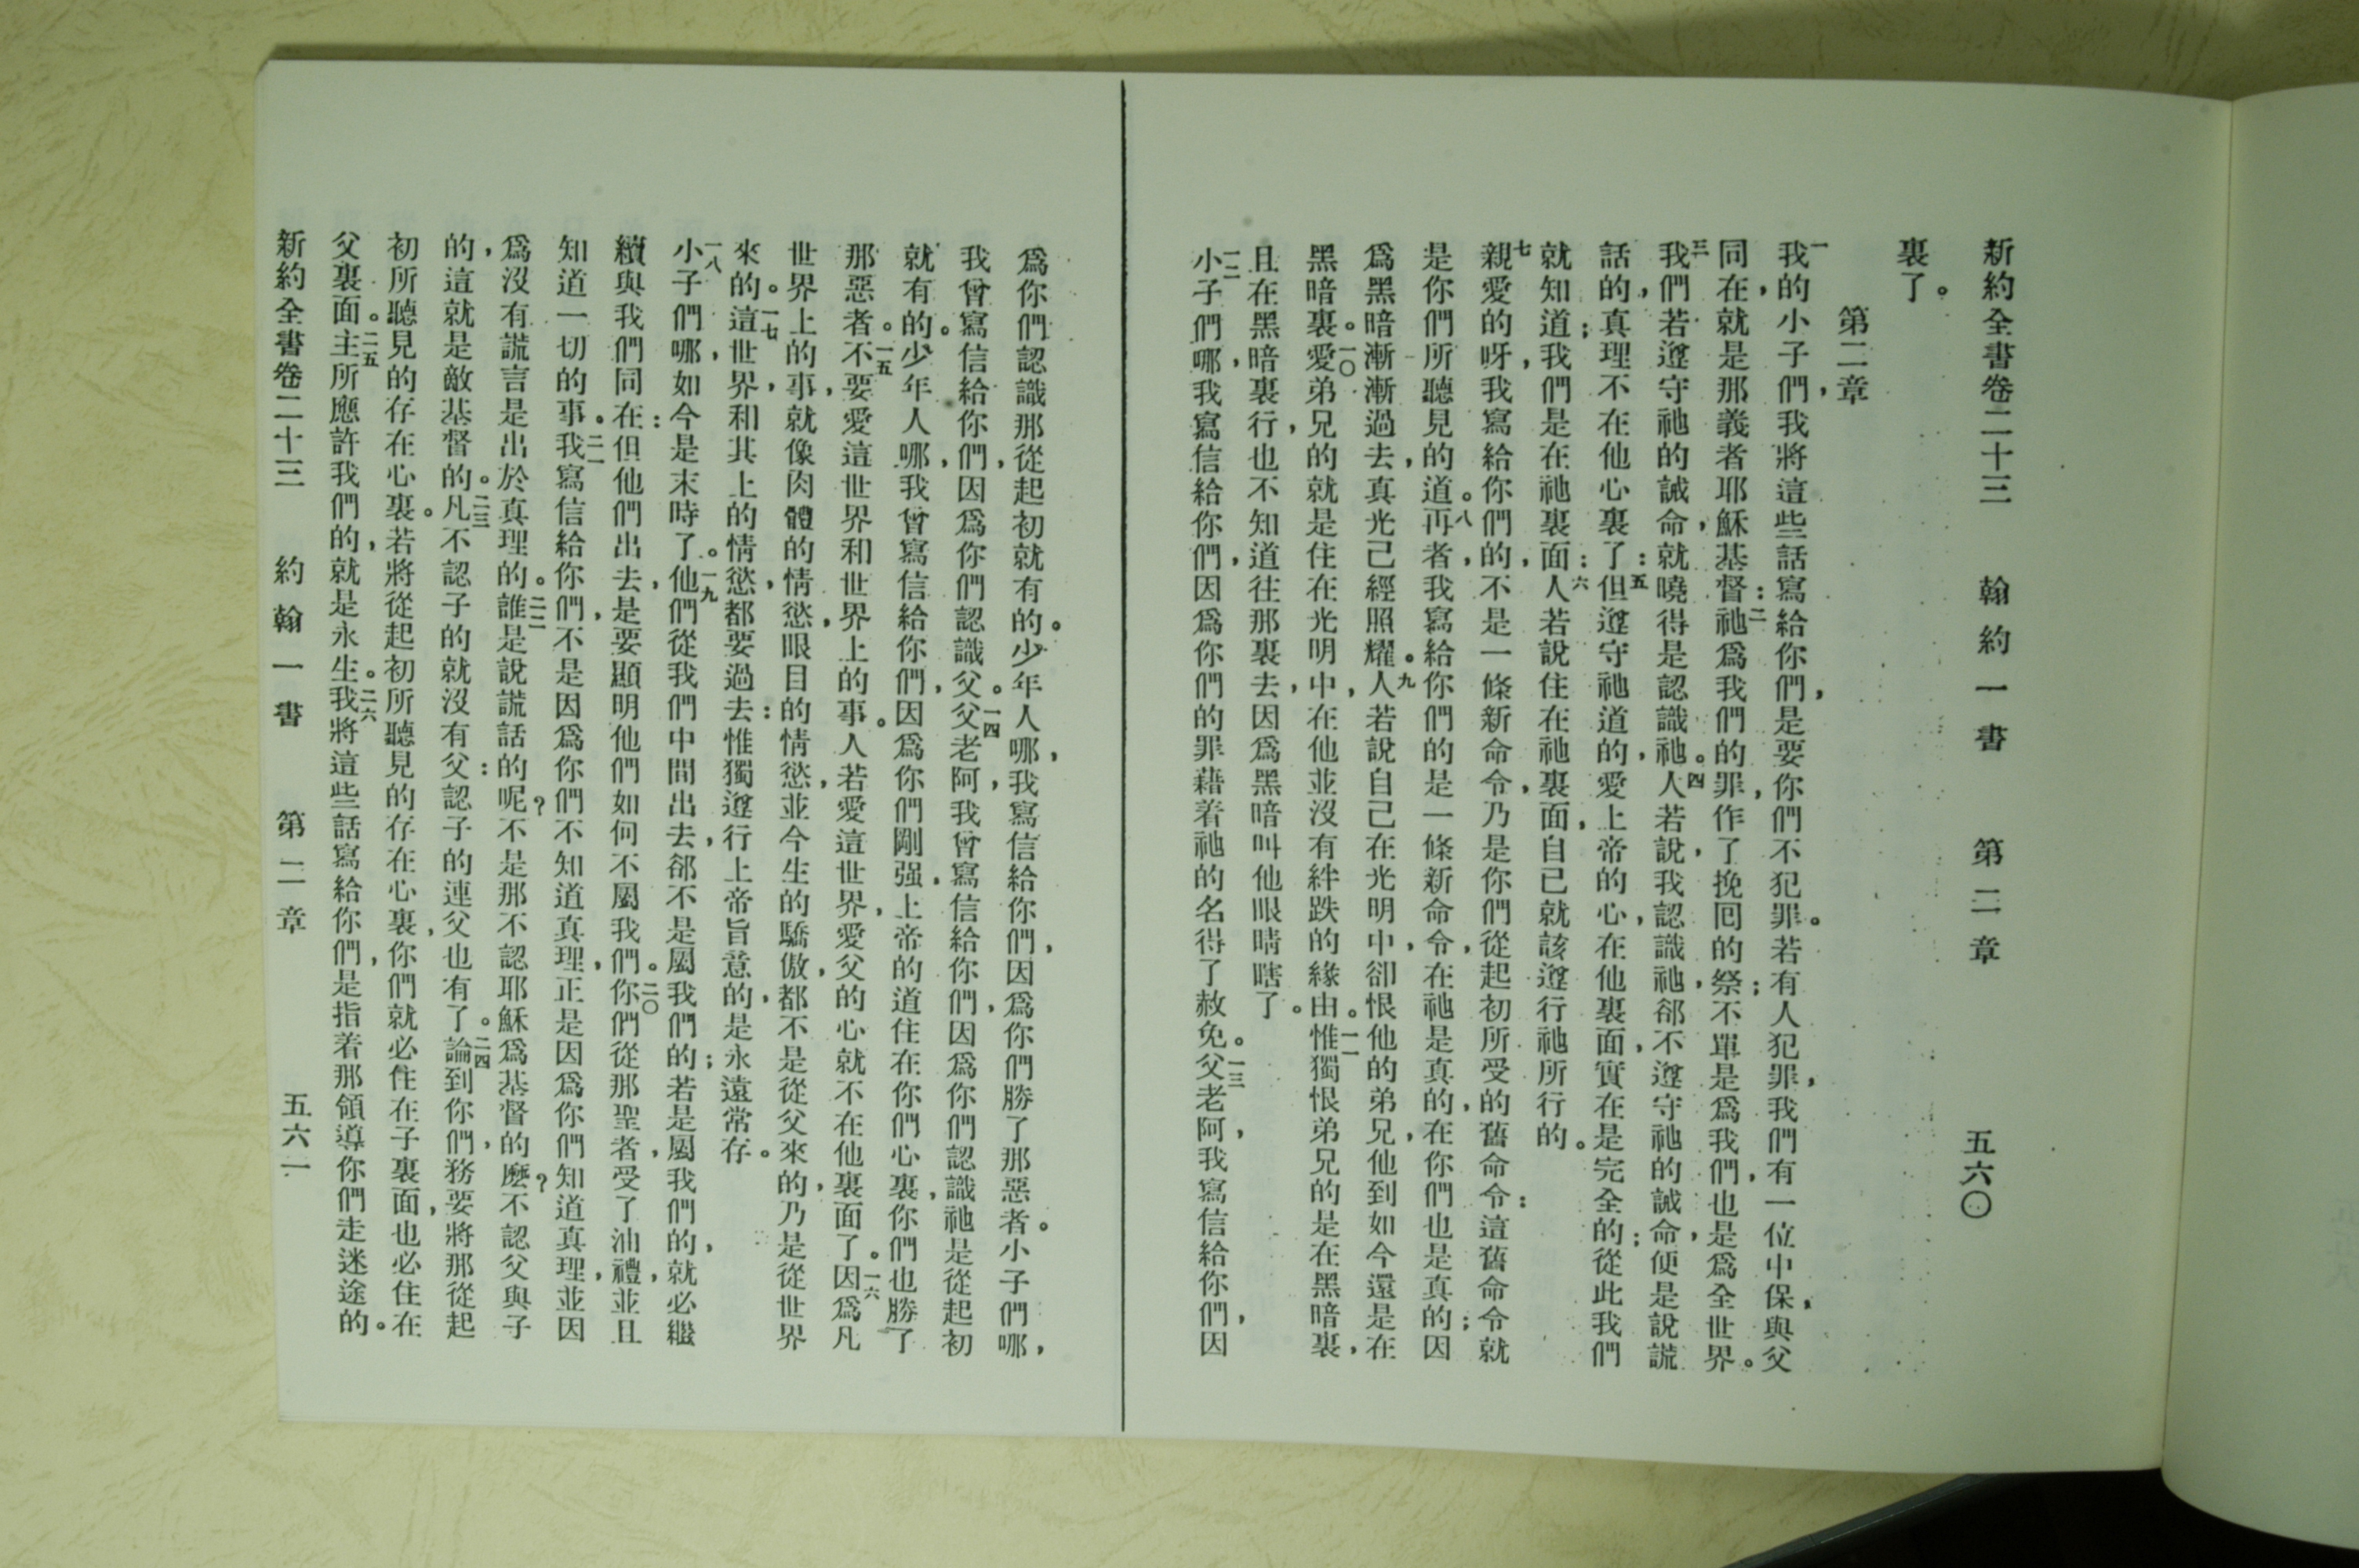 新約全書卷二十三　翰約一書　第二章　五六〇
裏了。
第二章
一我的小子們，我將這些話寫給你們，是要你們不犯罪。若有人犯罪，我們有一位中保，與父
同在，就是那義者耶穌基督：二祂爲我們的罪，作了挽囘的祭；不單是爲我們，也是爲全世界。
三我們若遵守祂的誡命，就曉得是認識祂。四人若說，我認識祂，郤不遵守祂的誡命，便是說謊
話的，真理不在他心裏了：五但遵守祂道的，愛上帝的心，在他裏面，實在是完全的；從此我們
就知道；我們是在祂裏面：六人若說住在祂裏面，自己就該遵行祂所行的。
七親愛的呀，我寫給你們的，不是一條新命令，乃是你們從起初所受的舊命令：這舊命令就
是你們所聽見的道。八再者，我寫給你們的是一條新命令，在祂是真的，在你們也是真的；因
爲黑暗漸漸過去，真光已經照耀。九人若說自己在光明中，卻恨他的弟兄，他到如今還是在
黑暗裏。一〇愛弟兄的就是住在光明中，在他並沒有絆跌的緣由。一一惟獨恨弟兄的是在黑暗裏，
且在黑暗裏行，也不知道往那裏去，因爲黑暗叫他眼睛瞎了。
一二小子們哪，我寫信給你們，因爲你們的罪藉着祂的名得了赦免。一三父老阿，我寫信給你們，因
爲你們認識那從起初就有的。少年人哪，我寫信給你們，因爲你們勝了那惡者。小子們哪，
我曾寫信給你們，因爲你們認識父。一四父老阿，我曾寫信給你們，因爲你們認識祂是從起初
就有的。少年人哪，我曾寫信給你們，因爲你們剛强，上帝的道住在你們心裏，你們也勝了
那惡者。一五不要愛這世界和世界上的事。人若愛這世界，愛父的心就不在他裏面了。一六因爲凡
世界上的事，就像肉體的情慾，眼目的情慾，並今生的驕傲，都不是從父來的，乃是從世界
來的。一七這世界，和其上的情慾，都要過去：惟獨遵行上帝旨意的，是永遠常存。
一八小子們哪，如今是末時了。一九他們從我們中間出去，郤不是屬我們的；若是屬我們的，就必繼
續與我們同在：但他們出去，是要顯明他們如何不屬我們。二〇你們從那聖者，受了油禮，並且
知道一切的事。二一我寫信給你們，不是因爲你們不知道真理，正是因爲你們知道真理，並因
爲沒有謊言是出於真理的。二二誰是說謊話的呢？不是那不認耶穌爲基督的麽？不認父與子
的，這就是敵基督的。二三凡不認子的就沒有父：認子的連父也有了。二四論到你們，務要將那從起
初所聽見的存在心裏。若將從起初所聽見的存在心裏，你們就必住在子裏面，也必住在
父裏面。二五主所應許我們的，就是永生。二六我將這些話寫給你們，是指着那領導你們走迷途的。
新約全書卷二十三　約翰一書　第二章　五六一